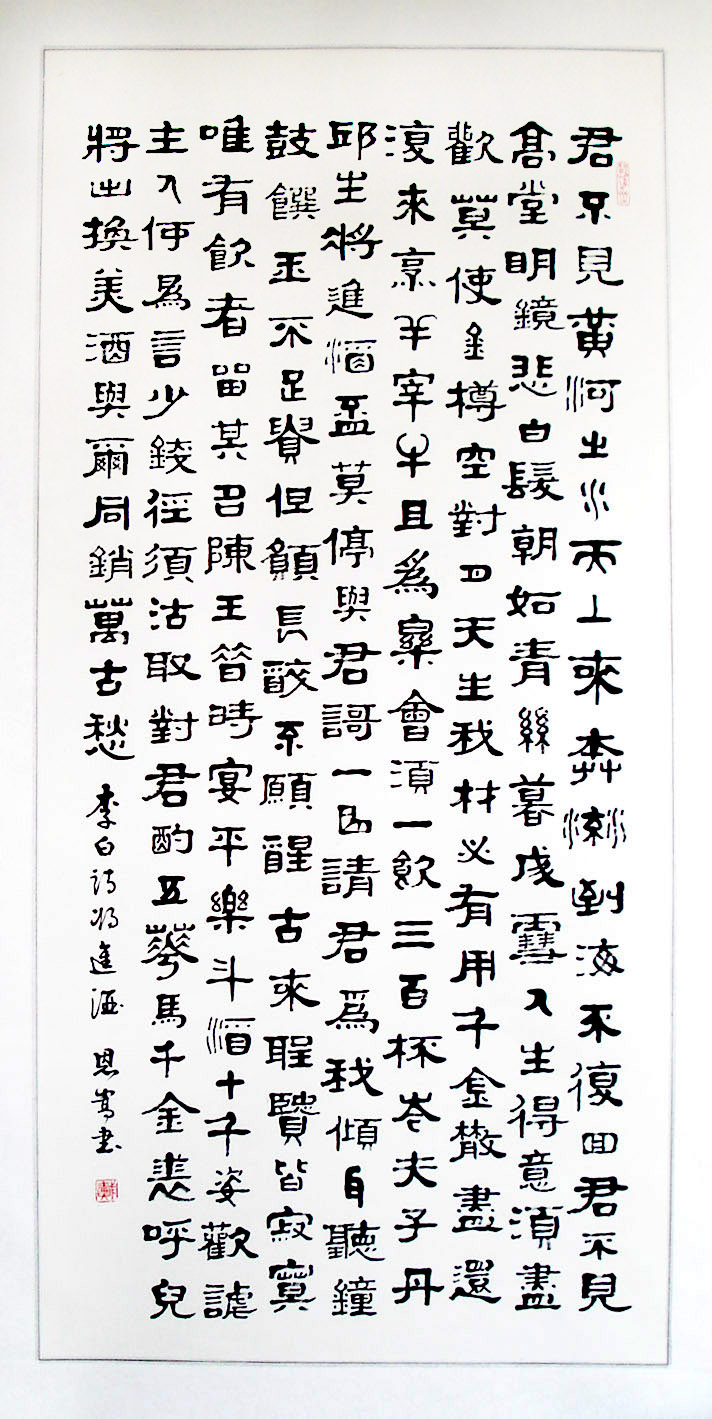 君不見黃河之水天上來奔流到海不復回君不見
高堂明鏡悲白髮朝如青絲暮成雪人生得意須盡
歡莫使金樽空對月天生我材必有用千金散盡還
復來烹羊宰牛且為樂會須一飲三百杯岑夫子丹
邱生將進酒盃莫停與君謌一曲請君為我傾耳聽鐘
鼓饌玉不足貴但願長醉不願醒古來聖賢皆寂寞
唯有飲者留其名陳王昔時宴平樂斗酒十千姿歡謔
主人何為言少錢徑須沽取對君酌五華馬千金裘呼兒
將出換美酒與爾同銷萬古愁 李白詩將進酒 恩嵩書